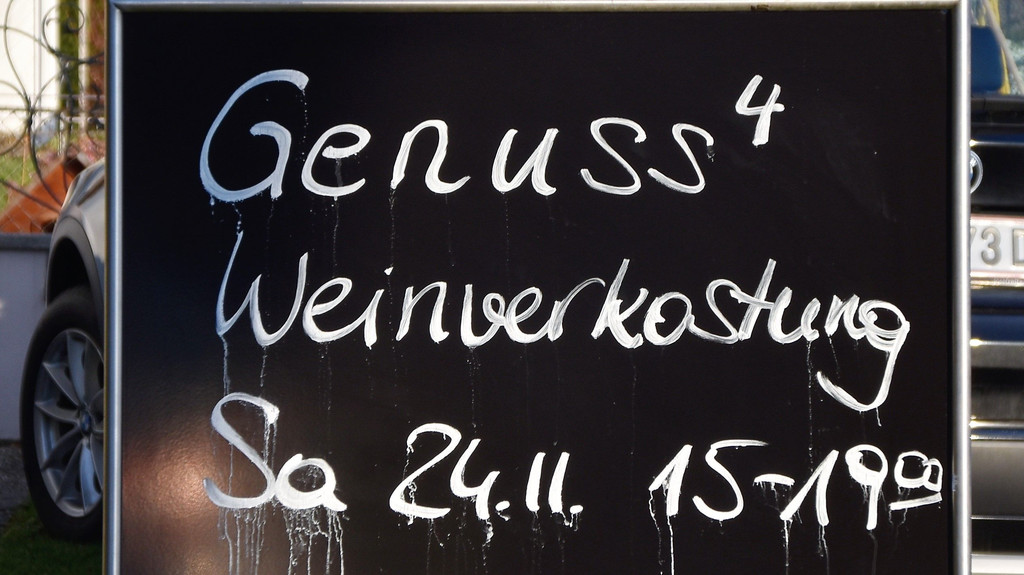 Genuss⁴
Weinverkostung
Sa 24.11. 15-19⁰⁰
73 D